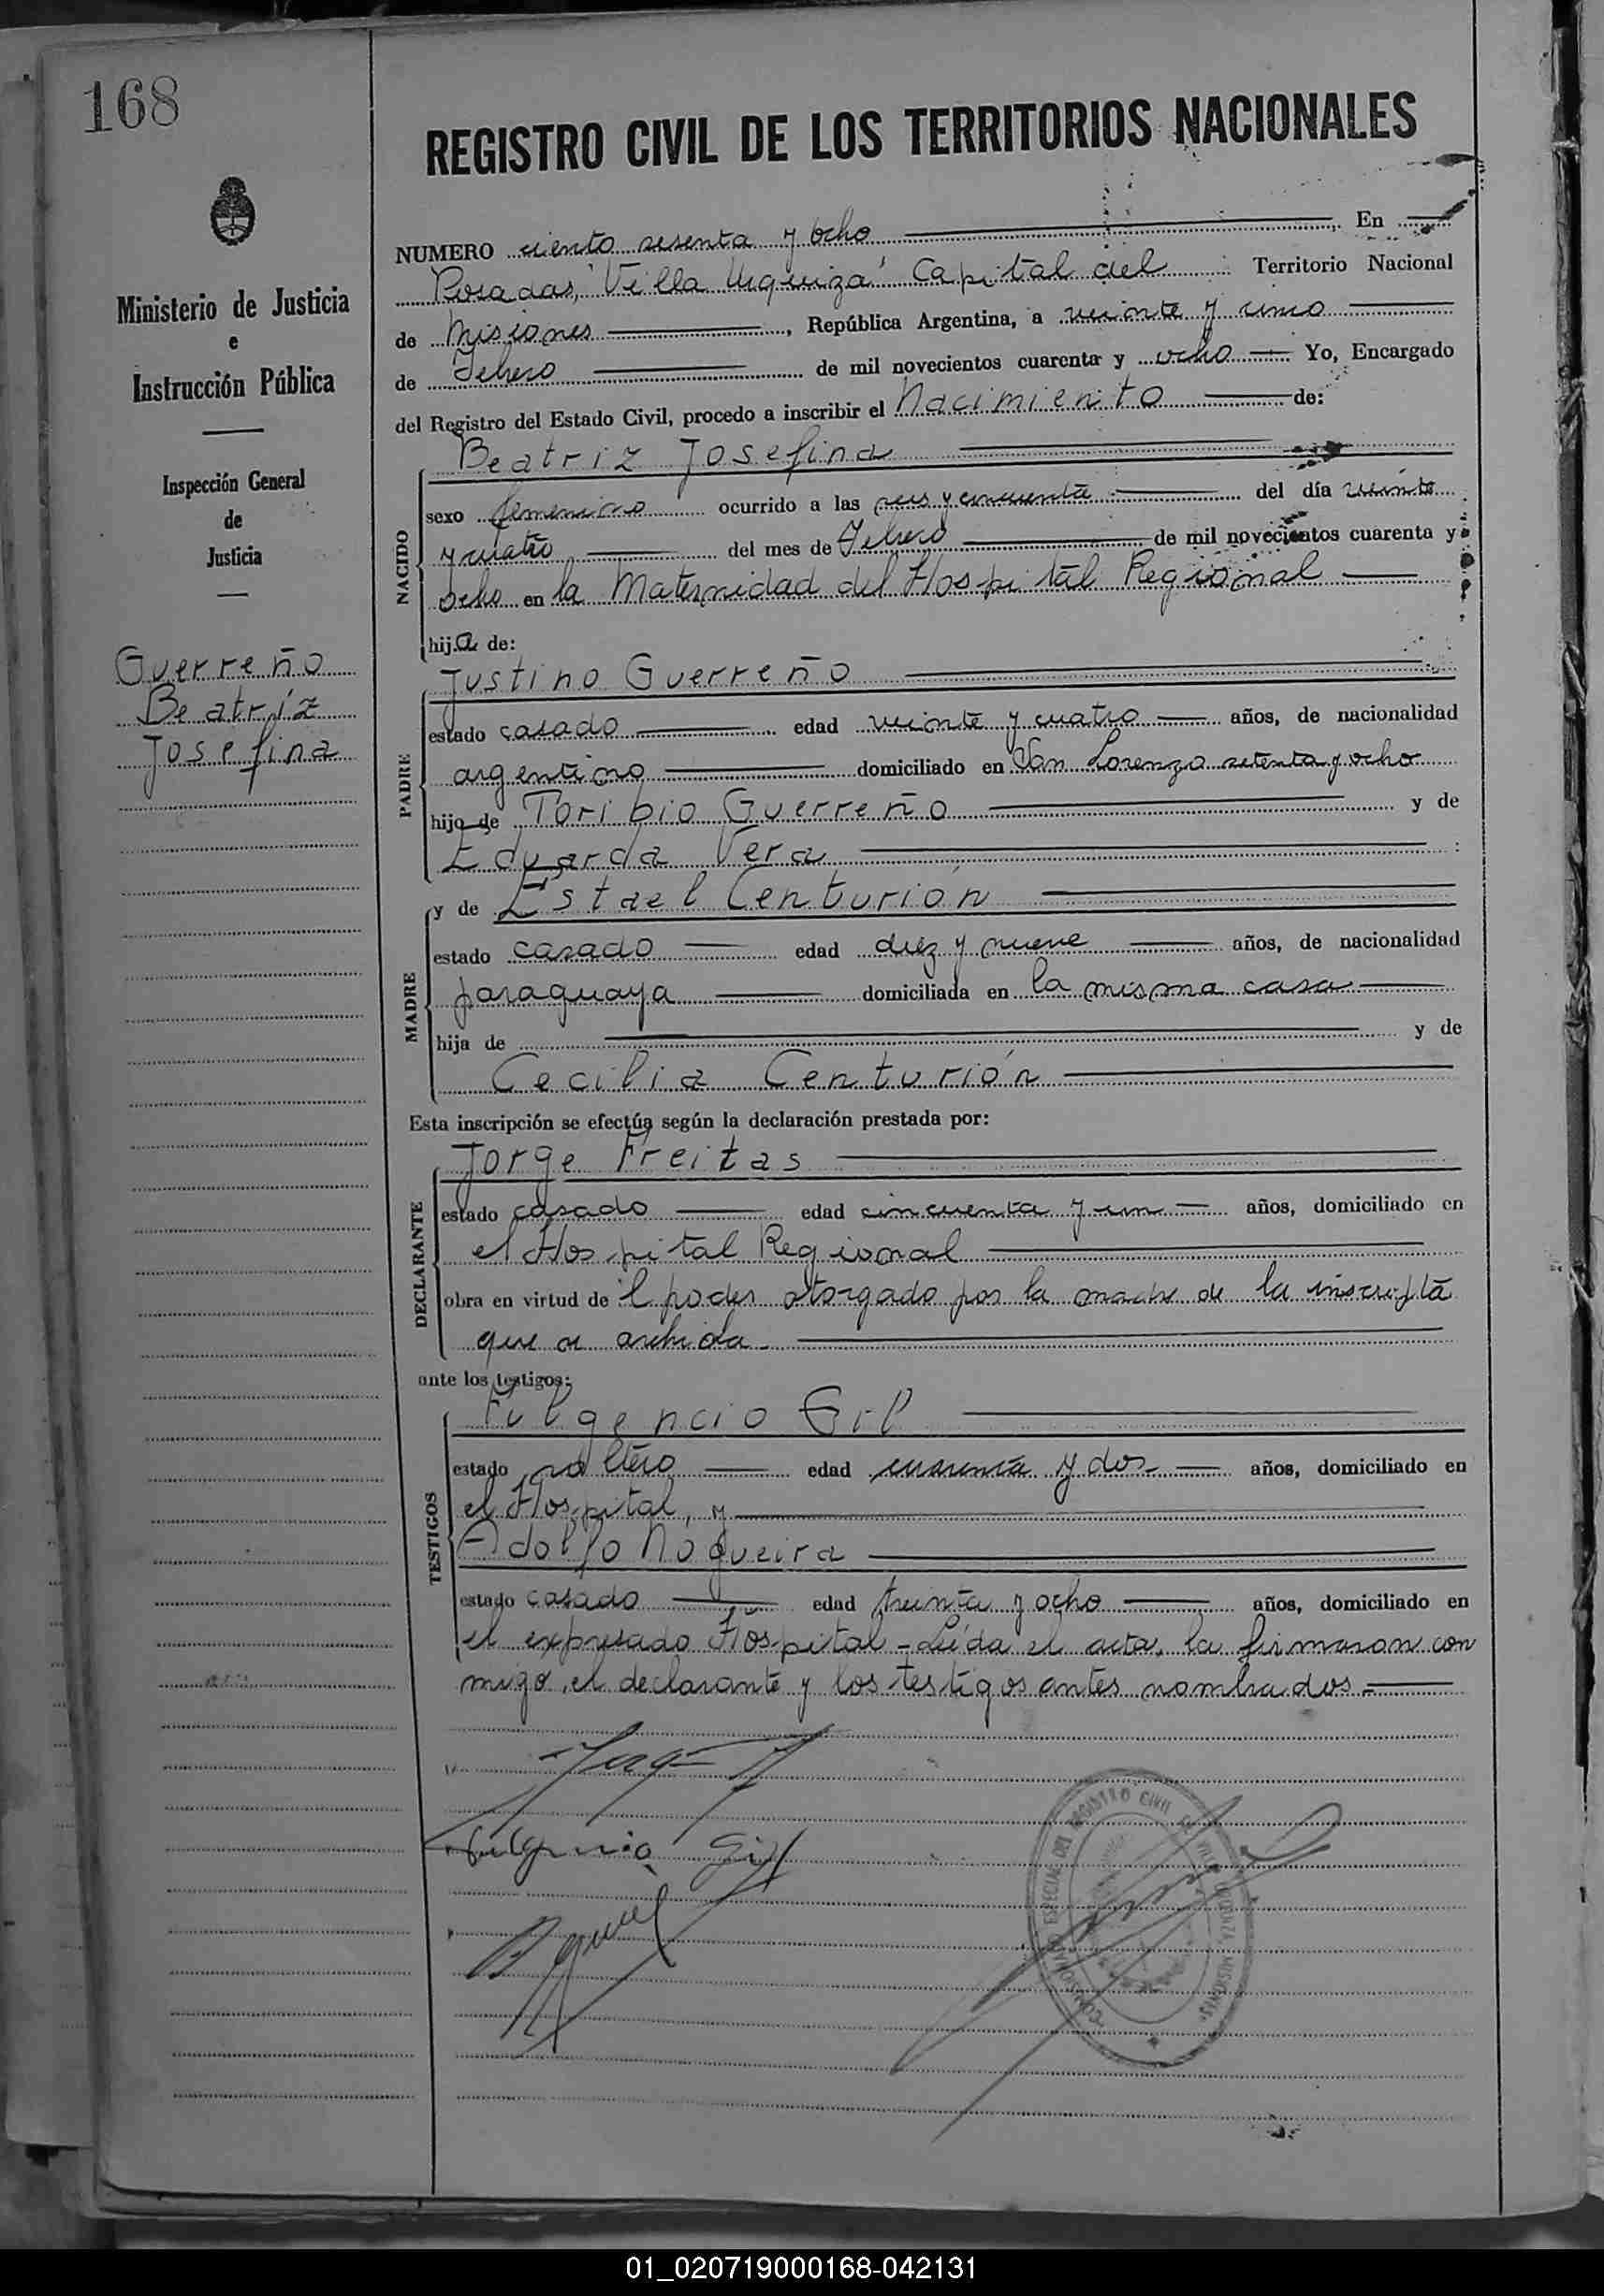 168
REGISTRO CIVIL DE LOS TERRITORIOS NACIONALES
Ministerio de Justicia
e
Instrucción Pública
Inspección General
de
Justicia
Guerreño
Beatriz
Josefina
NUMERO ciento sesenta y ocho En
Posadas, "Villa Urquiza" Capital del Territorio Nacional
de Misiones, República Argentina, a veinte y cinco
de Febrero de mil novecientos cuarenta y ocho Yo, Encargado
del Registro del Estado Civil, procedo a inscribir el Nacimiento de:
NACIDO
Beatriz Josefina
sexo femenino ocurrido a las seis y cincuenta del día veinte
y cuatro del mes de Febrero de mil novecientos cuarenta y
ocho en la Maternidad del Hospital Regional
hija de:
PADRE
Justino Guerreño
estado casado edad veinte y cuatro años, de nacionalidad
argentino domiciliado en San Lorenzo setenta y ocho
hijo de Toribio Guerreño y de
Eduarda Vera
MADRE
y de Estael Centurión
estado casado edad diez y nueve años, de nacionalidad
paraguaya domiciliada en la misma casa
hija de y de
Cecilia Centurión
Esta inscripción se efectúa según la declaración prestada por:
DECLARANTE
Jorge Freitas
estado casado edad cincuenta y un años, domiciliado en
el Hospital Regional
obra en virtud del poder otorgado por la madre de la inscripta
que se archida
ante los testigos:
TESTIGOS
Fulgencio Gil
estado soltero edad cuarenta y dos años, domiciliado en
el Hospital, y
Adolfo Nogueira
estado casado edad treinta y ocho años, domiciliado en
el expresado Hospital - Leída el acta, la firmaron con
migo, el declarante y los testigos antes nombrados
Jorge
Fulgencio Gil
REGISTRO CIVIL
01_020719000168-042131